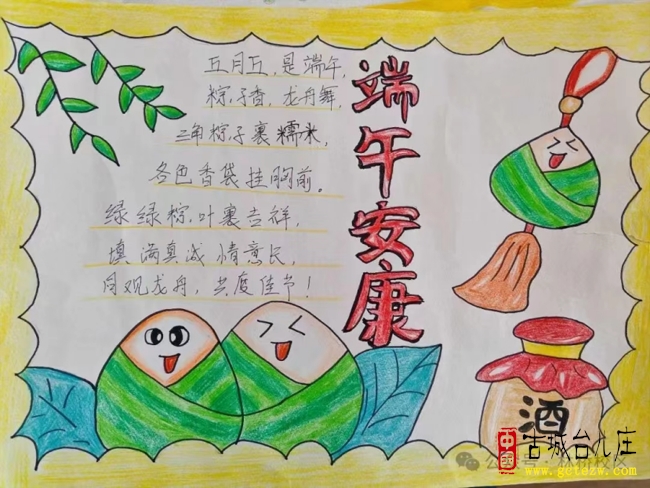 五月五，是端午，
粽子香，龙舟舞，
三角粽子裹糯米，
各色香袋挂胸前。
绿绿粽叶裹吉祥，
填满真诚情意长，
同观龙舟，共度佳节！
端午安康
酒
中国
古城台儿庄
www.gctezw.com
公众号